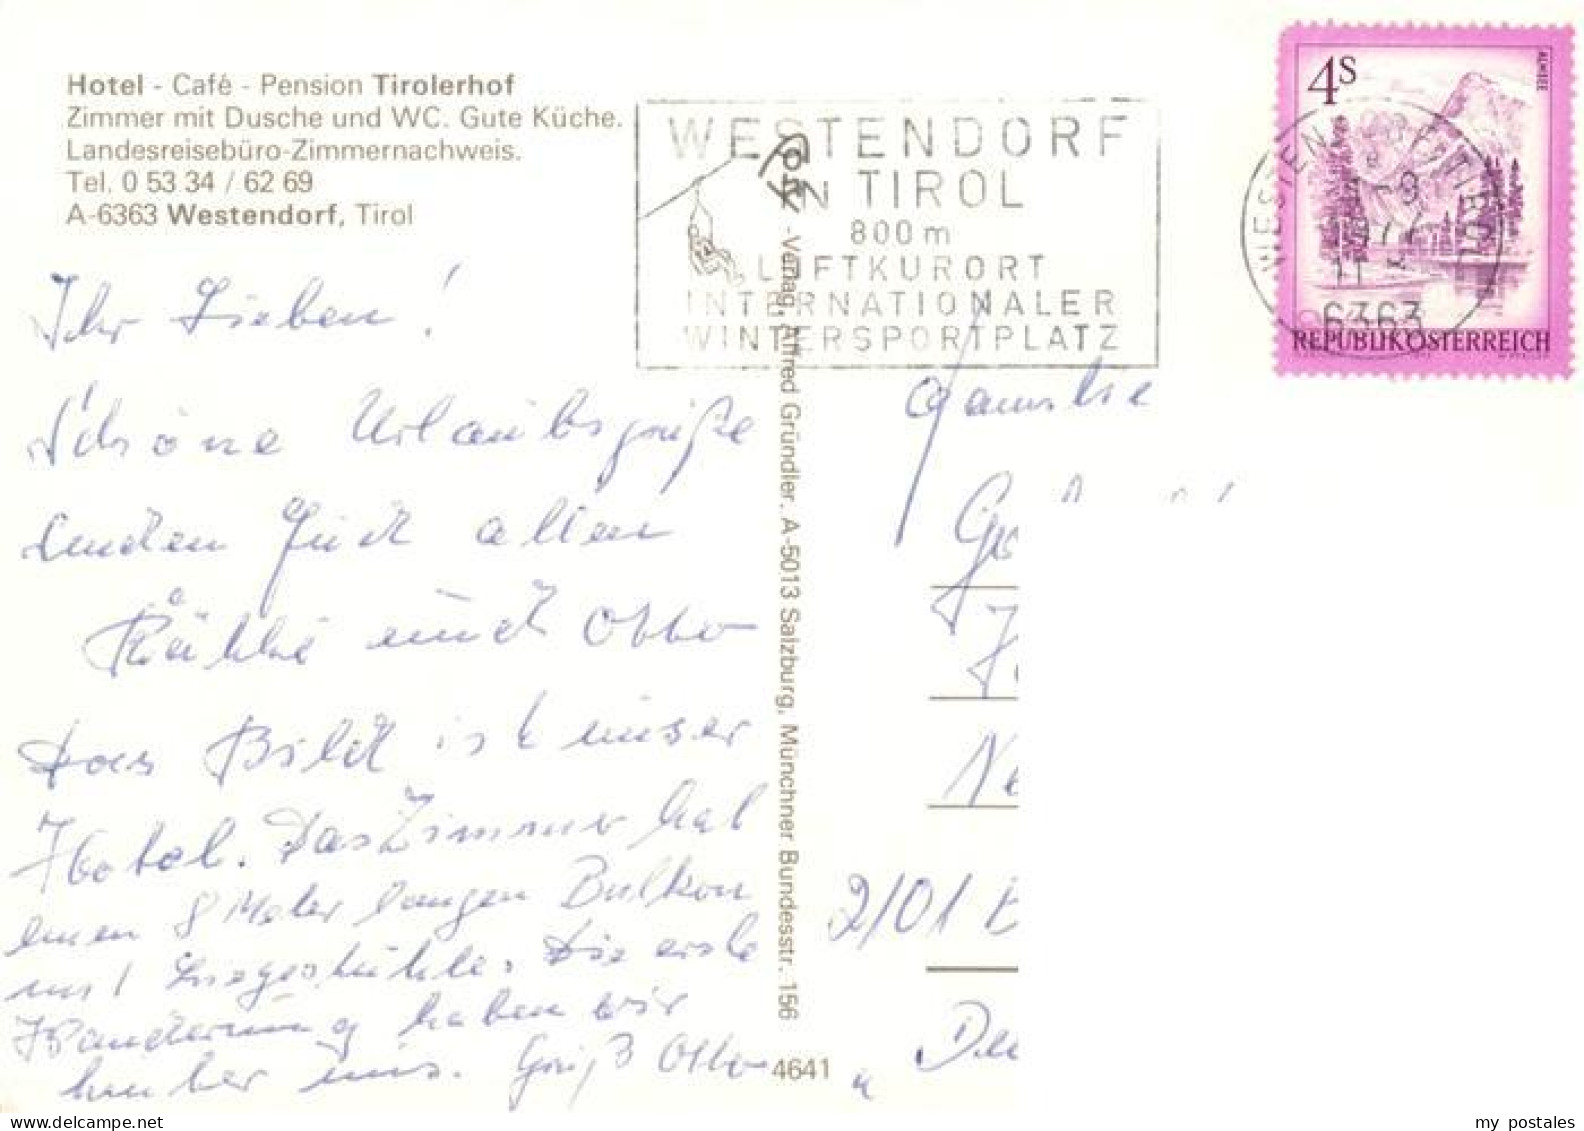 Hotel - Café - Pension Tirolerhof
Zimmer mit Dusche und WC. Gute Küche.
Landesreisebüro-Zimmernachweis.
Tel. 0 53 34 / 62 69
A-6363 Westendorf, Tirol
WESTENDORF
IN TIROL
800 m
LUFTKURORT
INTERNATIONALER
WINTERSPORTPLATZ
4S
ALMSEE
6363
REPUBLIK ÖSTERREICH
Ihr Lieben!
Schöne Urlaubsgrüße
senden Euch allen
Käthe und Otto
Das Bild ist unser
Hotel. Das Zimmer hat
einen 8 Meter langen Balkon
mit Liegestühle. Die erste
Wanderung haben wir
hinter uns. Gruß Otto
-Verlag, Alfred Gründler, A-5013 Salzburg, Münchner Bundesstr. 156
4641
Familie
2/01
my postales